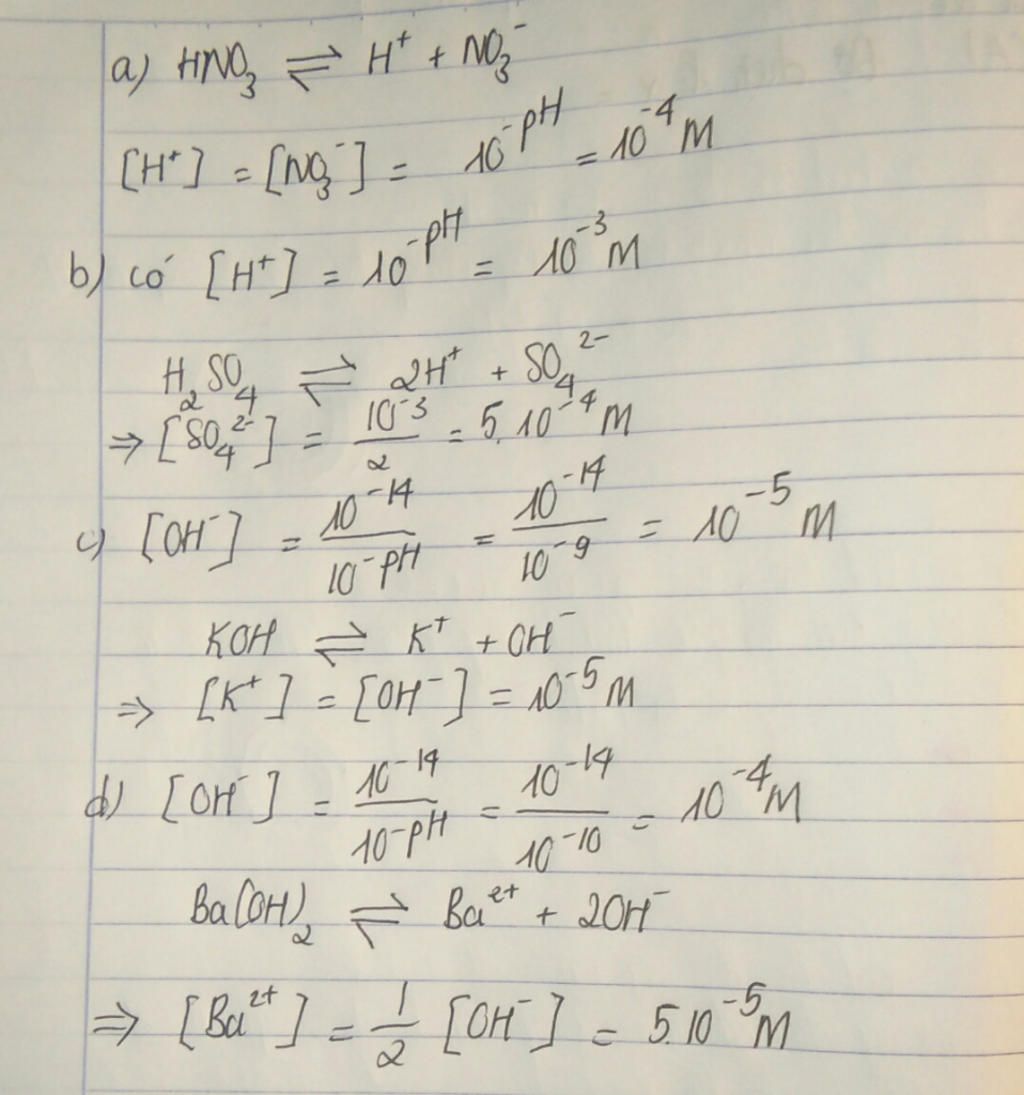 a) HNO₃ ⇌ H⁺ + NO₃⁻
[H⁺] = [NO₃⁻] = 10^-pH = 10^-4 M
b) có [H⁺] = 10^-pH = 10^-3 M
H₂SO₄ ⇌ 2H⁺ + SO₄²⁻
⇒ [SO₄²⁻] = 10^-3 / 2 = 5.10^-4 M
c) [OH⁻] = 10^-14 / 10^-pH = 10^-14 / 10^-9 = 10^-5 M
KOH ⇌ K⁺ + OH⁻
⇒ [K⁺] = [OH⁻] = 10^-5 M
d) [OH⁻] = 10^-14 / 10^-pH = 10^-14 / 10^-10 = 10^-4 M
Ba(OH)₂ ⇌ Ba²⁺ + 2OH⁻
⇒ [Ba²⁺] = 1/2 [OH⁻] = 5.10^-5 M